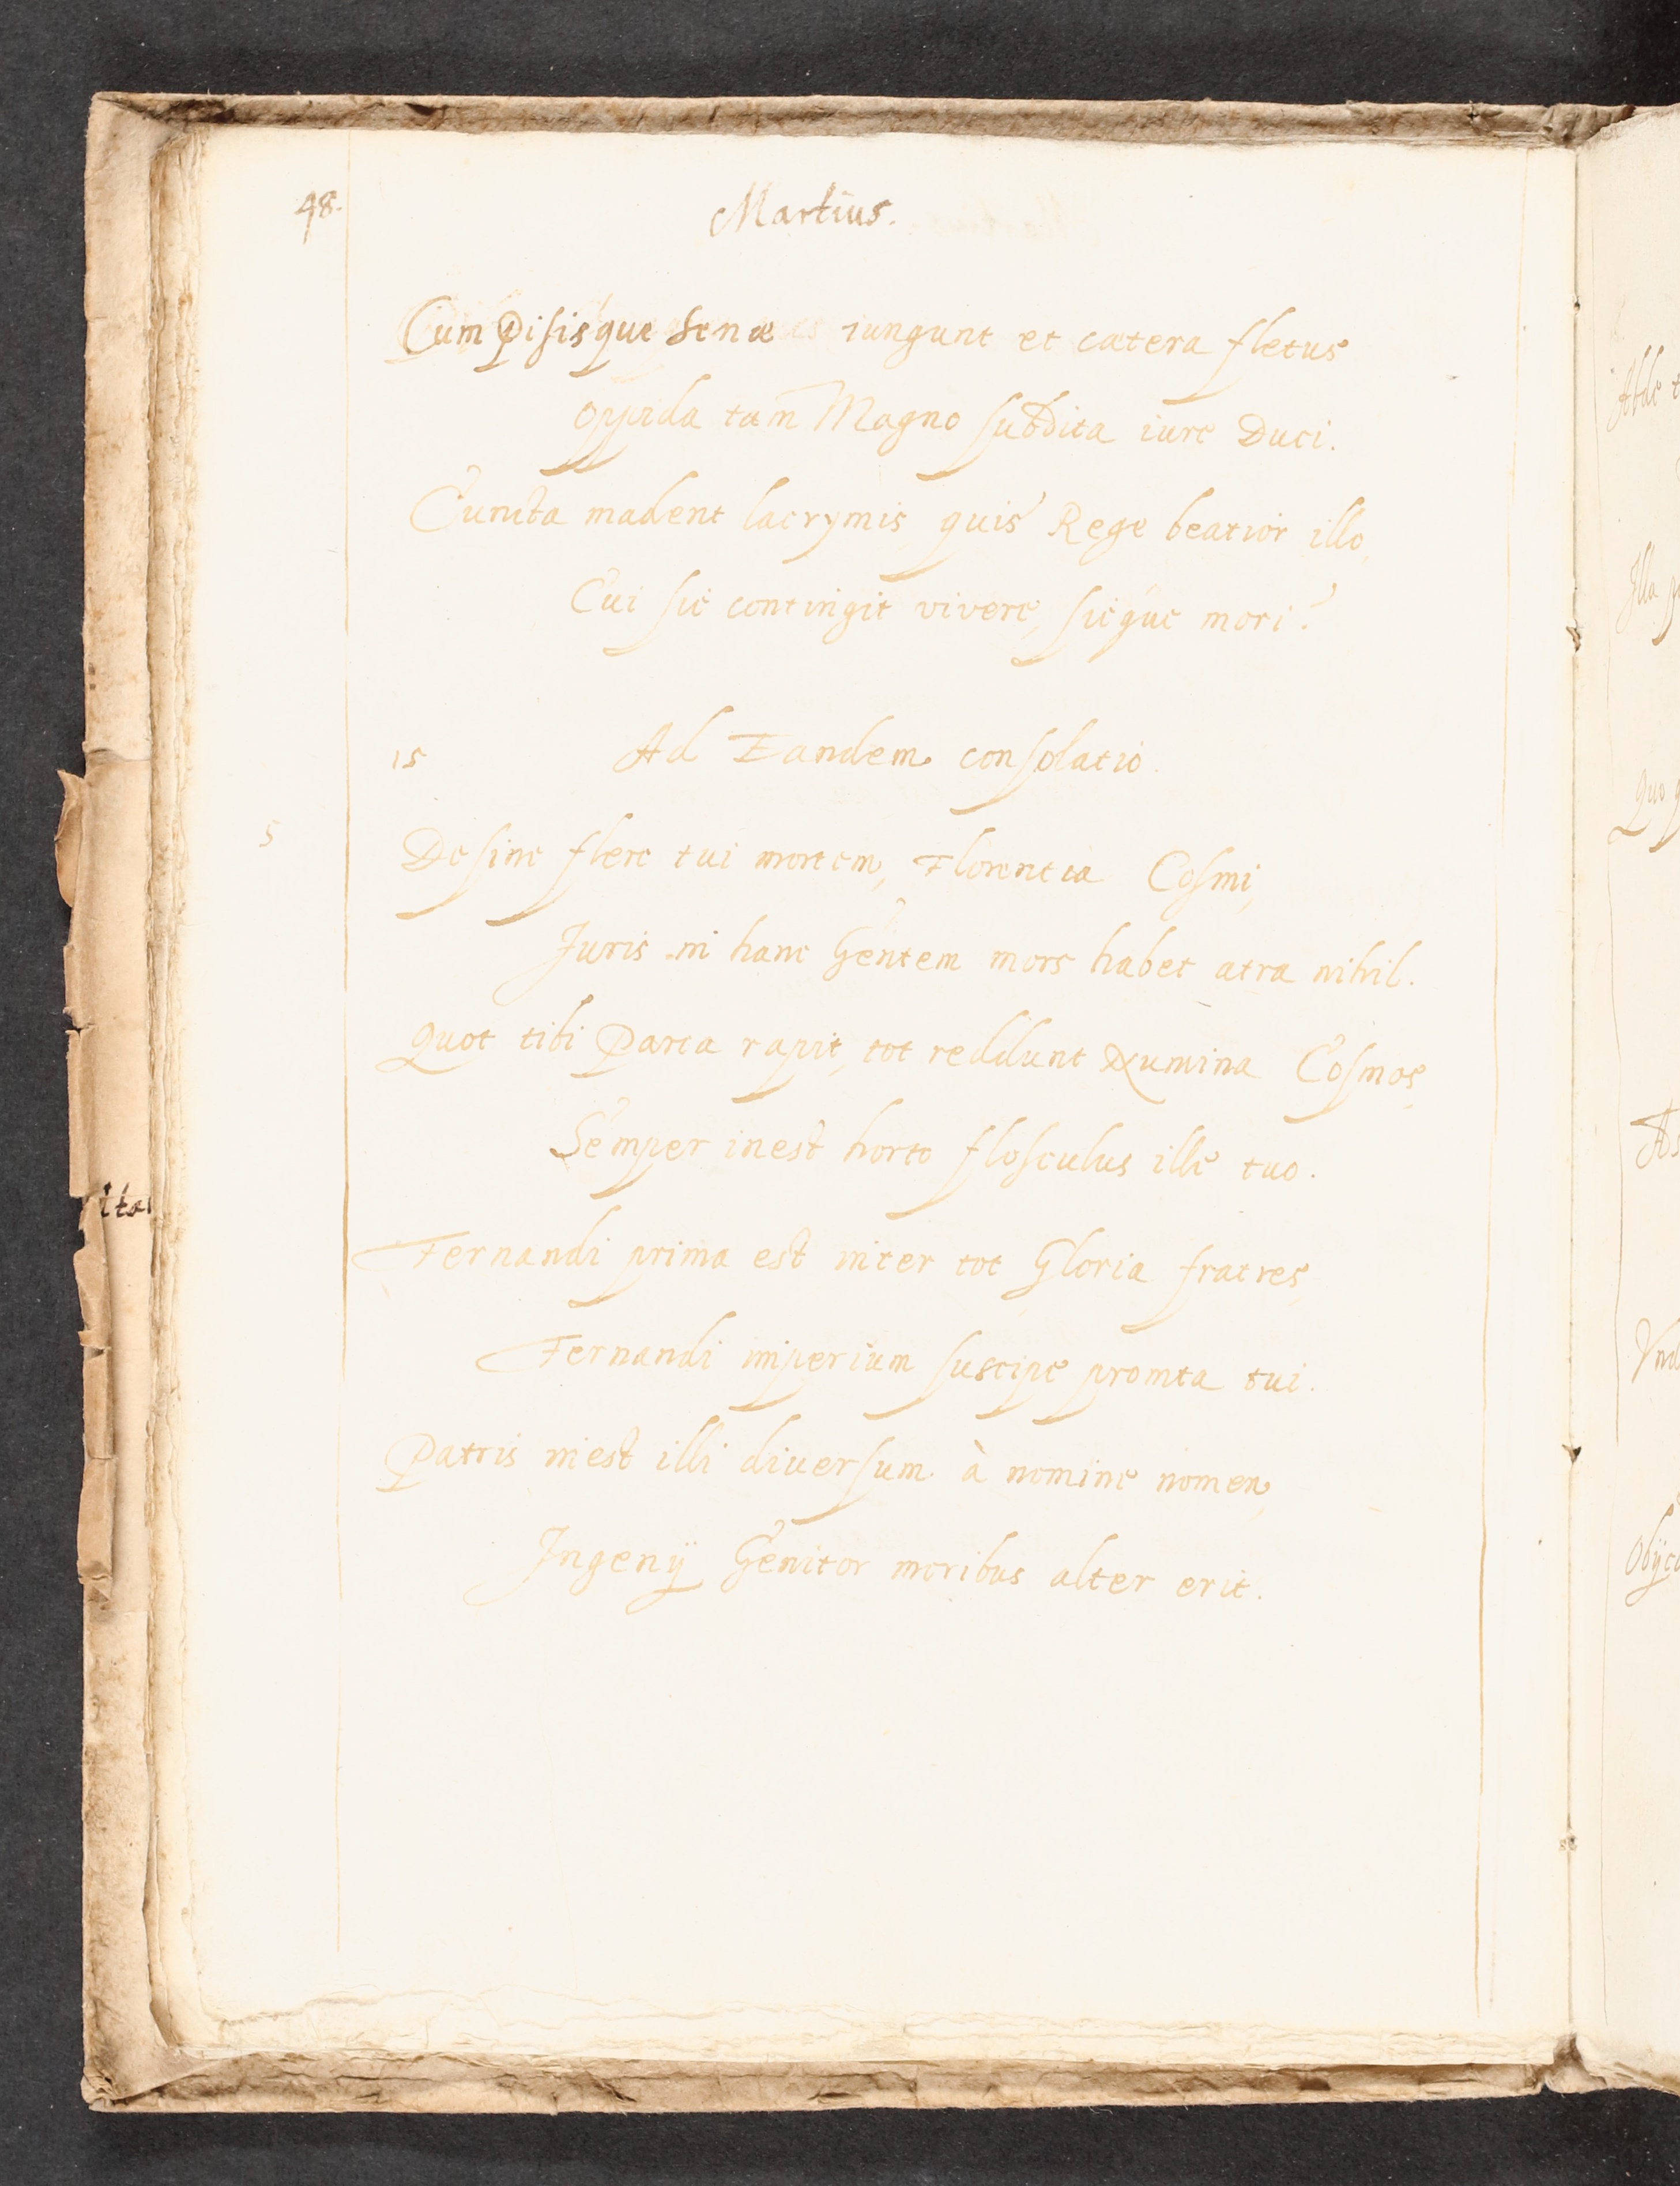 48.
Martius.
Cum Pisisque Senæ iungunt et cætera fletus
Oppida tam Magno subdita iure Duci.
Cuncta madent lacrymis, quis Rege beatior illo,
Cui sic contingit vivere, sicque mori?
15 Ad Eandem consolatio.
5
Desine flere tui mortem, Florentia Cosmi,
Juris in hanc Gentem mors habet atra nihil.
Quot tibi Parca rapit, tot reddunt Numina Cosmos,
Semper inest horto flosculus ille tuo.
Fernandi prima est inter tot Gloria fratres,
Fernandi imperium suscipe promta tui.
Patris inest illi diuersum à nomine nomen,
Ingenij Genitor moribus alter erit.